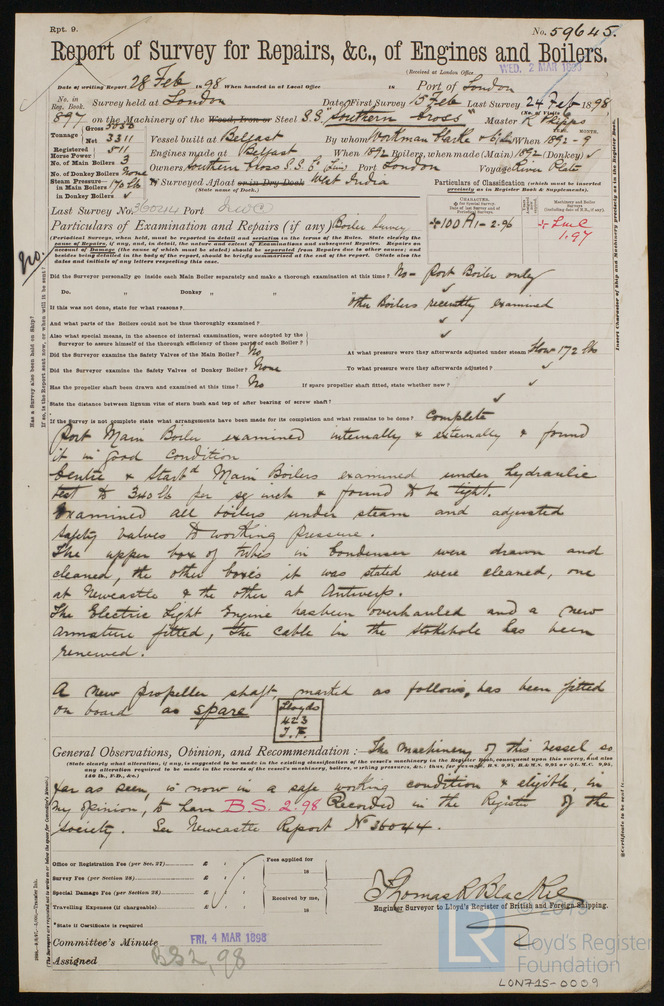 Rpt. 9.
No. 59645.
Report of Survey for Repairs, &c., of Engines and Boilers.
(Received at London Office
WED. 2 MAR 1898
Date of writing Report 28 Feb 1898 When handed in at Local Office 18 Port of London
No. in Reg. Book.
897
Survey held at London Date, First Survey 15 Feb Last Survey 24 Feb 1898
on the Machinery of the Wood, Iron or Steel S.S. "Southern Cross" Master
Tonnage Gross 5050
Net 3311
Vessel built at Belfast By whom Workman Clarke When 1892-9
Registered Horse Power 511
Engines made at Belfast When 1892 Boilers, when made (Main) 1892 (Donkey) ✓
No. of Main Boilers 3
No. of Donkey Boilers none
Owners Southern Cross S.S. Co Port London Voyage River Plate
Steam Pressure in Main Boilers 170 lb
in Donkey Boilers ✓
If Surveyed Afloat or in Dry Dock West India
(State name of Dock.)
Particulars of Classification (which must be inserted precisely as in Register Book & Supplements).
Last Survey No. 36044 Port Nwc
Particulars of Examination and Repairs (if any) Boiler Survey
+100A1-2.96
+LMC
1.97
No.
Did the Surveyor personally go inside each Main Boiler separately and make a thorough examination at this time? No - Port Boiler only
Do. " Donkey " " "
If this was not done, state for what reasons? Other Boilers recently examined
And what parts of the Boilers could not be thoroughly examined? ✓
Also what special means, in the absence of internal examination, were adopted by the
Surveyor to assure himself of the thorough efficiency of those parts of each Boiler? ✓
Did the Surveyor examine the Safety Valves of the Main Boiler? No At what pressure were they afterwards adjusted under steam 172 lbs
Did the Surveyor examine the Safety Valves of Donkey Boiler? None To what pressure were they afterwards adjusted? ✓
Has the propeller shaft been drawn and examined at this time? No If spare propeller shaft fitted, state whether new? ✓
State the distance between lignum vitæ of stern bush and top of after bearing of screw shaft? ✓
If the Survey is not complete state what arrangements have been made for its completion and what remains to be done? Complete
Port Main Boiler examined internally & externally & found
it in good condition
Centre & Starbd Main Boilers examined under hydraulic
test to 340 lb per sq inch & found to be tight.
Examined all boilers under steam and adjusted
safety valves to working pressure.
The upper box of tubes in Condenser were drawn and
cleaned, the other boxes it was stated were cleaned, one
at Newcastle & the other at Antwerp.
The Electric Light Engine has been overhauled and a new
armature fitted, the cable in the stokehole has been
renewed.
A new propeller shaft, marked as follows, has been fitted
on board as spare
Lloyds
423
J.F.
General Observations, Opinion, and Recommendation :— The machinery of this vessel so
far as seen, is now in a safe working condition & eligible, in
my opinion, to have B.S. 2.98 Recorded in the Register of the
Society. See Newcastle Report No 36044.
Office or Registration Fee (per Sec. 27) £
Survey Fee (per Section 28) £
Special Damage Fee (per Section 28) £
Travelling Expenses (if chargeable) £
Fees applied for
18
Received by me,
18
Thomas R Blackie
Engineer Surveyor to Lloyd's Register of British and Foreign Shipping.
*State if Certificate is required
Committee's Minute FRI. 4 MAR 1898
Assigned BS 2,98
LR
© 2019
Lloyd's Register
Foundation
LON715-0009